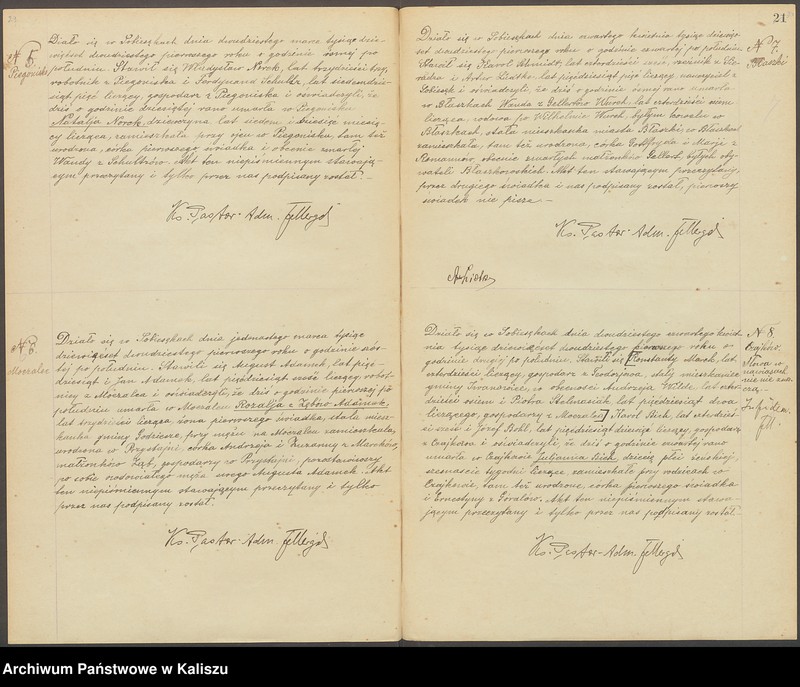 21
N 5.
Piegonisko
Działo się w Sobieszkach dnia dwudziestego marca tysiąc dzie-
więćset dwudziestego pierwszego roku o godzinie ósmej po
południu. Stawił się Władysław Norek, lat trzydzieści trzy,
robotnik z Piegoniska i Ferdynand Schultz, lat siedemdzie-
siąt pięć liczący, gospodarz z Piegoniska i oświadczyli, że
dziś o godzinie dziesiątej rano umarła w Piegonisku
Natalja Norek, dziewczyna lat siedem i miesięcy
liczącą, zamieszkała przy ojcu w Piegonisku, tam też
urodzona, córka pierwszego świadka i obecnie zmarłej
Wandy z Schultzów. Akt ten niepiśmiennym stawają-
cym przeczytany i tylko przez nas podpisany został.-
Ks. Pastor-Adm. Fellerjd
N 6.
Moczalec
Działo się w Sobieszkach dnia jedenastego marca tysiąc
dziewięćset dwudziestego pierwszego roku o godzinie czwar-
tej po południu. Stawili się August Adamek, lat pięć-
dziesiąt i Jan Adamek, lat pięćdziesiąt sześć liczący, robot-
nicy z Moczalca i oświadczyli, że dziś o godzinie pierwszej po
południu umarła w Moczalcu Rozalja z Zębów Adamek,
lat trzydzieści licząca, żona pierwszego świadka, stała miesz-
kanka gminy Godziesze, przy mężu na Moczalcu zamieszkała,
urodzona w Przystajni, córka Andrzeja i Zuzanny z Marków,
małżonków Ząb, gospodarzy w Przystajni, pozostawiwszy
po sobie owdowiałego męża swego Augusta Adamek. Akt
ten niepiśmiennym stawającym przeczytany i tylko
przez nas podpisany został.
Ks. Pastor-Adm. Fellerjd
21
N 7.
Błaszki
Działo się w Sobieszkach dnia czwartego kwietnia tysiąc dziewięć-
set dwudziestego pierwszego roku o godzinie czwartej po południu.
Stawił się Karol Schmidt, lat czterdzieści sześć, rzeźnik z Sie-
radza i Artur Lüdtke, lat pięćdziesiąt pięć liczący, nauczyciel z
Sobieszk i oświadczyli, że dziś o godzinie ósmej rano umarła
w Błaszkach Wanda z Gellertów Wursch, lat czterdzieści osiem
licząca, wdowa po Wilhelmie Wursch, byłym kowalu w
Błaszkach, stała mieszkanka miasta Błaszki, w Błaszkach
zamieszkała, tam też urodzona, córka Gottfryda i Marji z
Romanów, obecnie zmarłych małżonków Gellert, byłych oby-
wateli Błaszkowskich. Akt ten stawającym przeczytany,
przez drugiego świadka i nas podpisany został, pierwszy
świadek nie pisze.-
Ks. Pastor-Adm. Fellerjd
N 8.
Czajków.
Słowa w
nawiasach
Działo się w Sobieszkach dnia dwudziestego czwartego kwiet-
nia tysiąc dziewięćset dwudziestego pierwszego roku o
godzinie drugiej po południu. Stawili się [Konstanty Marek, lat
czterdzieści liczący, gospodarz z Teodorjowa, stały mieszkaniec
gminy Iwanowice, w obecności Andrzeja Wilde, lat czter-
dzieści osiem i Piotra Stelmasiak lat pięćdziesiąt dwa
liczącego, gospodarzy z Moczalec], Karol Bich, lat czterdzie-
ści sześć i Józef Bohl, lat pięćdziesiąt dziewięć liczący, gospodarz
z Czajkowa i oświadczyli, że dziś o godzinie czwartej rano
umarła w Czajkowie Juljanna Bich, dziecię płci żeńskiej,
szesnaście tygodni liczące, zamieszkałe przy rodzicach w
Czajkowie, tam też urodzone, córka pierwszego świadka
i Ernestyny z Goralów. Akt ten niepiśmiennym stawa-
jącym przeczytany i tylko przez nas podpisany został.-
Ks. Pastor-Adm. Fellerjd
Archiwum Państwowe w Kaliszu